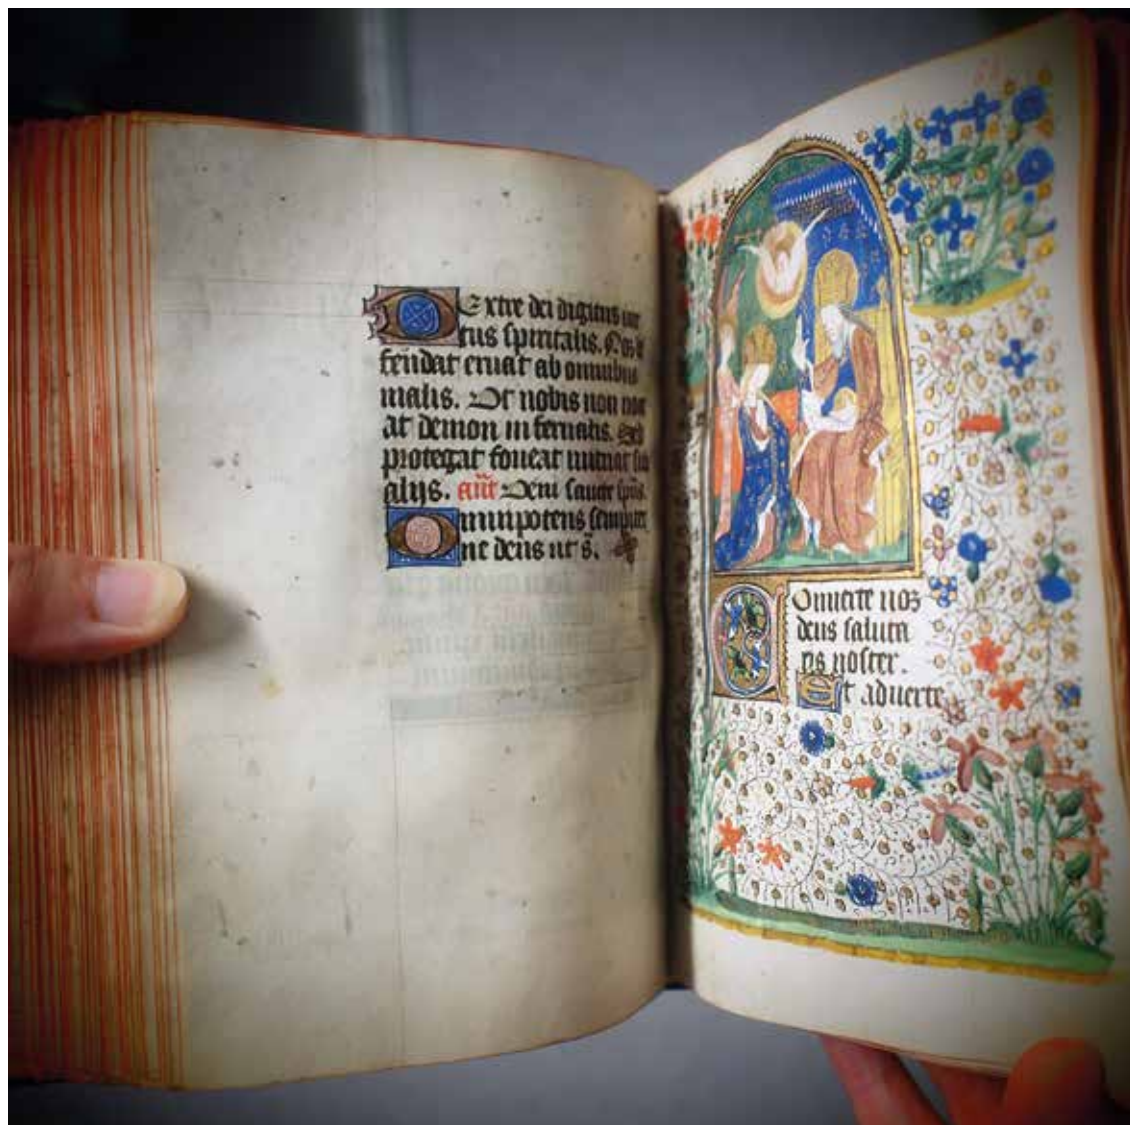 Dextre dei digitus uir
tus spiritalis. Nos de
fendat eruat ab omnibus
malis. Vt nobis non noce
at demon infernalis. Sed
protegat foueat nutriat sub
alijs. añt Veni sancte sp̃s.
Omnipotens sempiter
ne deus ut s̃.
Conuerte nos
deus saluta
ris noster.
Et aduerte